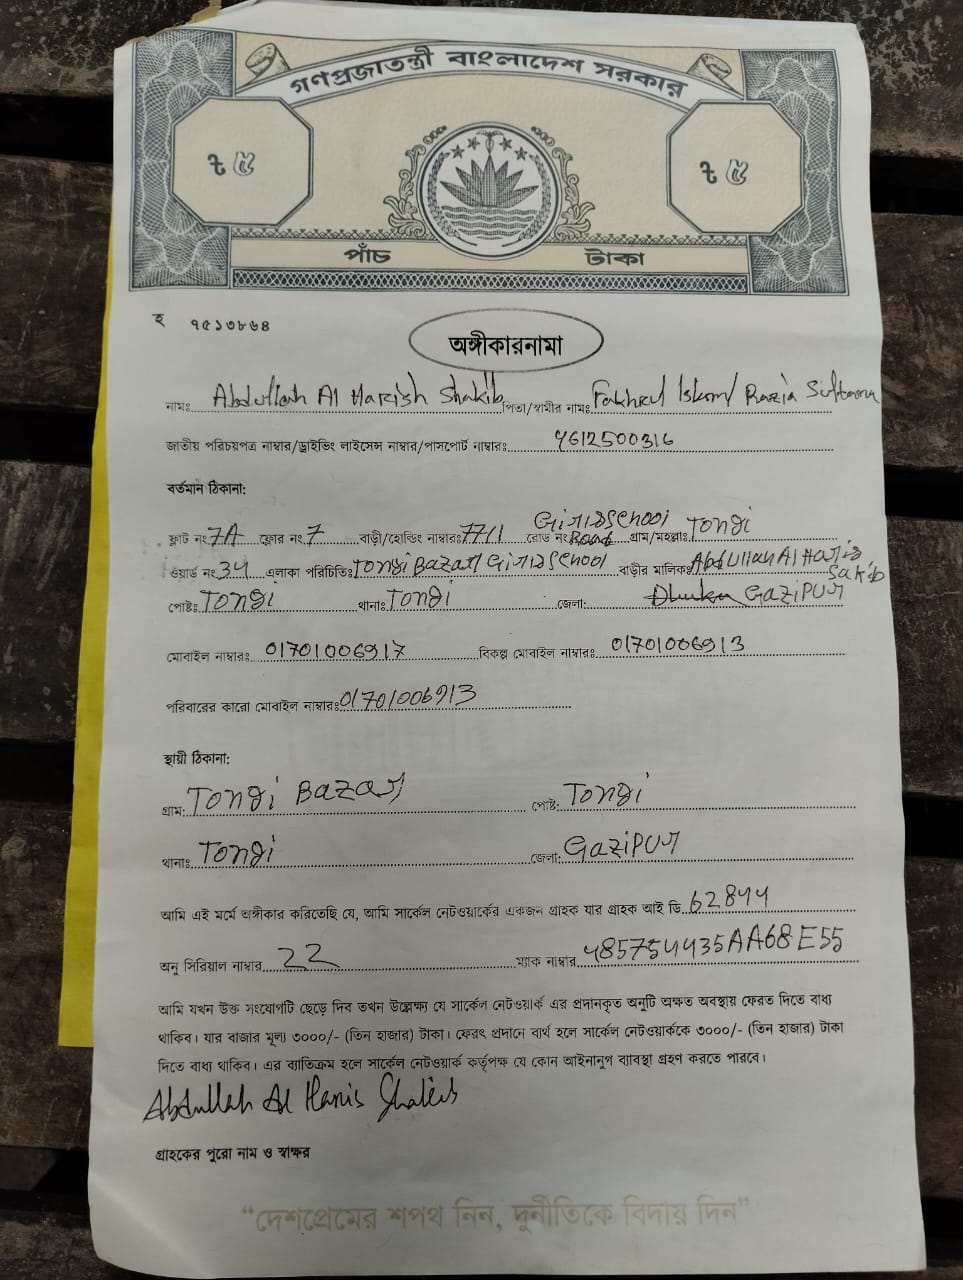 গণপ্রজাতন্ত্রী বাংলাদেশ সরকার
৳ ৫ ৳ ৫
পাঁচ টাকা
হ ৭৫১৩৮৬৪
অঙ্গীকারনামা
নামঃ Abdullah Al Harish Shakib পিতা/স্বামীর নামঃ Fakhrul Islam/ Razia Sultana
জাতীয় পরিচয়পত্র নাম্বার/ড্রাইভিং লাইসেন্স নাম্বার/পাসপোর্ট নাম্বারঃ 4612500316
বর্তমান ঠিকানা:
ফ্লাট নং 7A ফ্লোর নং 7 বাড়ী/হোল্ডিং নাম্বারঃ 77/1 রোড নং School Road গ্রাম/মহল্লাঃ Tongi
ওয়ার্ড নং 34 এলাকা পরিচিতিঃ Tongi Bazar School বাড়ীর মালিকঃ Abdullah Al Sakib
পোষ্টঃ Tongi থানাঃ Tongi জেলা: Gazipur
মোবাইল নাম্বারঃ 01701006917 বিকল্প মোবাইল নাম্বারঃ 01701006913
পরিবারের কারো মোবাইল নাম্বারঃ 01701006913
স্থায়ী ঠিকানা:
গ্রাম: Tongi Bazar পোষ্ট: Tongi
থানাঃ Tongi জেলা: Gazipur
আমি এই মর্মে অঙ্গীকার করিতেছি যে, আমি সার্কেল নেটওয়ার্কের একজন গ্রাহক যার গ্রাহক আই ডি 62844
অনু সিরিয়াল নাম্বার 22 ম্যাক নাম্বার 485754435AA68E55
আমি যখন উক্ত সংযোগটি ছেড়ে দিব তখন উল্লেক্ষ্য যে সার্কেল নেটওয়ার্ক এর প্রদানকৃত অনুটি অক্ষত অবস্থায় ফেরত দিতে বাধ্য
থাকিব। যার বাজার মূল্য ৩০০০/- (তিন হাজার) টাকা। ফেরৎ প্রদানে ব্যর্থ হলে সার্কেল নেটওয়ার্ককে ৩০০০/- (তিন হাজার) টাকা
দিতে বাধ্য থাকিব। এর ব্যাতিক্রম হলে সার্কেল নেটওয়ার্ক কর্তৃপক্ষ যে কোন আইনানুগ ব্যাবস্থা গ্রহণ করতে পারবে।
Abdullah Al Haris Shakib
গ্রাহকের পুরো নাম ও স্বাক্ষর
“দেশপ্রেমের শপথ নিন, দুর্নীতিকে বিদায় দিন”